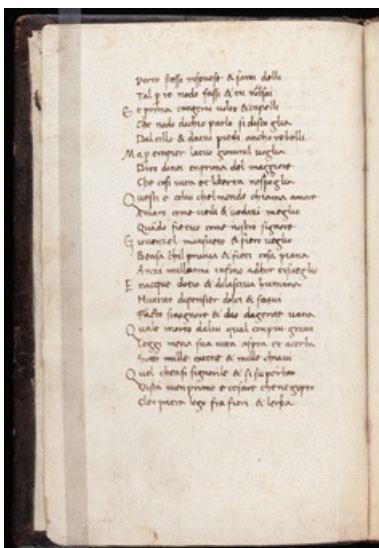 Perte stesso rispose & sarai delli
Tal p te nodo fassi & tu nol sai
E prima cangerai volto e capelli
Che nodo dichio parlo si discioglia
Dal collo & datuo piedi anchor rebelli
Ma p empier latuo giovenil voglia
Diro dinoi enprima del maggiore
Che cosi vita et liberta nespoglia
Questi e colui chelmondo chiama amore
Amaro come vedi & vedrai meglio
Quado fie tuo come nostro signore
Giovencel mansueto & fiero veglio
Bensa chil pruova & fieti cosa piana
Anzi millanni infino adhor tisveglio
E nacque dotio & dilascivia humana
Nutrito dipensier dolci & soavi
Facto sisignore & dio dagente vana
Quale morto dalui qual conpiu gravi
Leggi mena sua vita aspra et acerba
Sotto mille catene & mille chiavi
Quel chensi signorile & si superba
Vista vien primo e cesare chenegypto
Cleopatra lego fra fiori & lerba